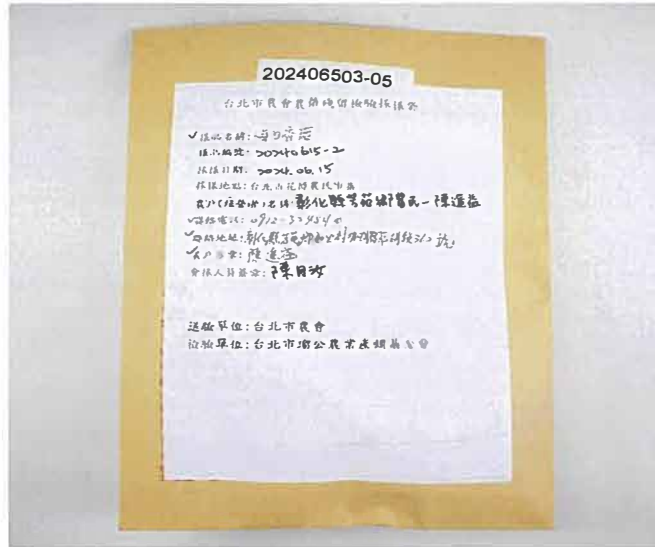 202406503-05
台北市農會農藥殘留檢驗採樣袋
✓樣品名稱:
樣品編號: 20240615-2
採樣日期: 2024.06.15
採樣地點:台北市花博農民市集
農戶(經營者)名稱:彰化縣芳苑鄉農民-陳進益
✓聯絡電話:
✓聯絡地址:彰化縣芳苑鄉
✓農戶簽章:陳進益
會採人員簽章:陳月汝
送檢單位:台北市農會
檢驗單位:台北市瑠公農業產銷基金會